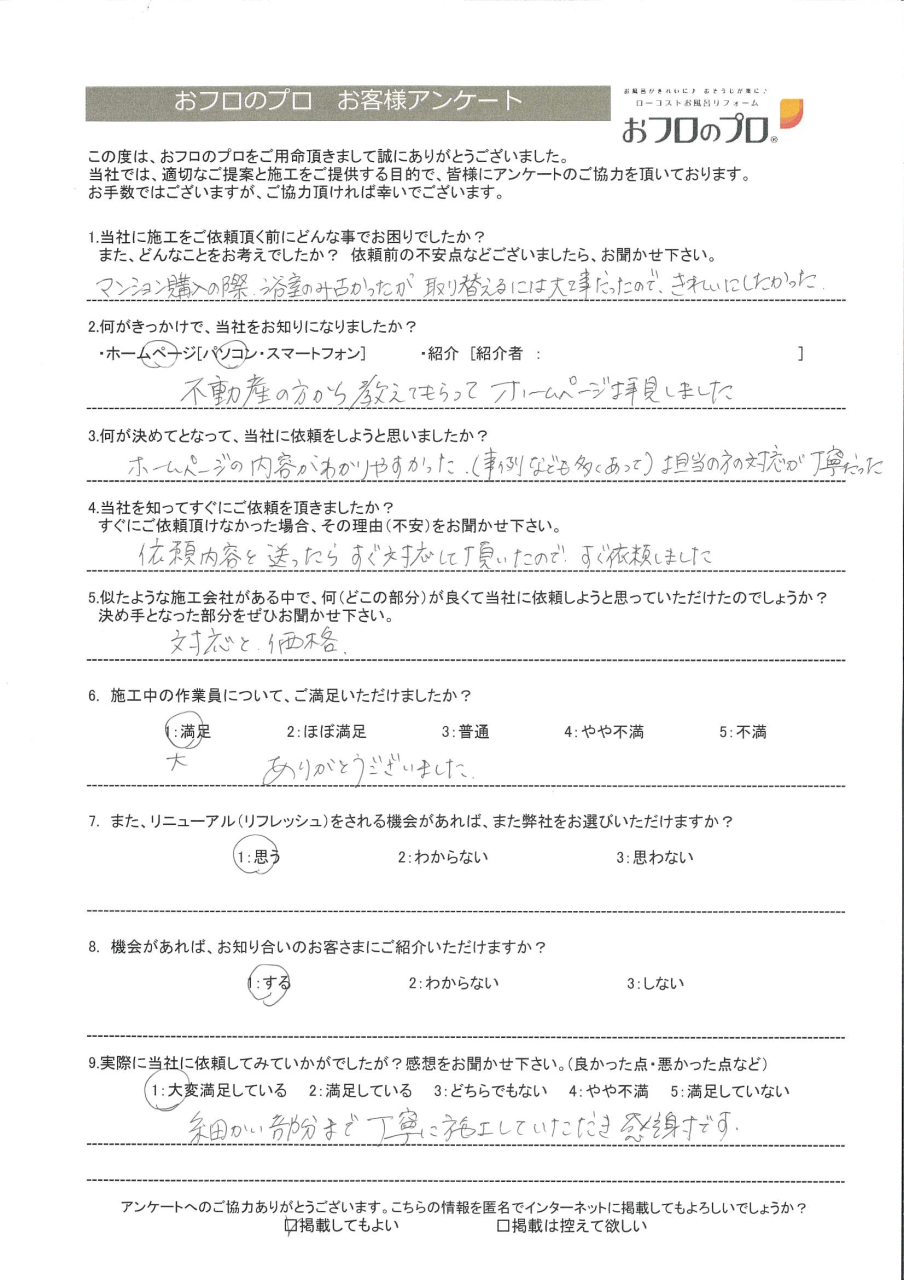 おフロのプロ　お客様アンケート
お風呂がきれいに♪ おそうじが楽に♪
ローコストお風呂リフォーム
おフロのプロ®
この度は、おフロのプロをご用命頂きまして誠にありがとうございました。
当社では、適切なご提案と施工をご提供する目的で、皆様にアンケートのご協力を頂いております。
お手数ではございますが、ご協力頂ければ幸いでございます。
1.当社に施工をご依頼頂く前にどんな事でお困りでしたか？
また、どんなことをお考えでしたか？ 依頼前の不安点などございましたら、お聞かせ下さい。
マンション購入の際、浴室のみ古かったが 取り替えるには大工事だったので、きれいにしたかった.
2.何がきっかけで、当社をお知りになりましたか？
・ホームページ[パソコン・スマートフォン]　・紹介 [紹介者 ：　]
不動産の方から教えてもらって ホームページ拝見しました
3.何が決めてとなって、当社に依頼をしようと思いましたか？
ホームページの内容がわかりやすかった.(事例なども多くあって) 担当の方の対応が丁寧だった
4.当社を知ってすぐにご依頼を頂きましたか？
すぐにご依頼頂けなかった場合、その理由(不安)をお聞かせ下さい。
依頼内容を送ったら すぐ対応して頂いたので すぐ依頼しました
5.似たような施工会社がある中で、何(どこの部分)が良くて当社に依頼しようと思っていただけたのでしょうか？
決め手となった部分をぜひお聞かせ下さい。
対応と、価格.
6. 施工中の作業員について、ご満足いただけましたか？
1：満足　2：ほぼ満足　3：普通　4：やや不満　5：不満
大　ありがとうございました.
7. また、リニューアル(リフレッシュ)をされる機会があれば、また弊社をお選びいただけますか？
1：思う　2：わからない　3：思わない
8. 機会があれば、お知り合いのお客さまにご紹介いただけますか？
1：する　2：わからない　3：しない
9.実際に当社に依頼してみていかがでしたが？感想をお聞かせ下さい。(良かった点・悪かった点など)
1：大変満足している　2：満足している　3：どちらでもない　4：やや不満　5：満足していない
細かい部分まで 丁寧に施工していただき 感謝です.
アンケートへのご協力ありがとうございます。こちらの情報を匿名でインターネットに掲載してもよろしいでしょうか？
☑掲載してもよい　□掲載は控えて欲しい